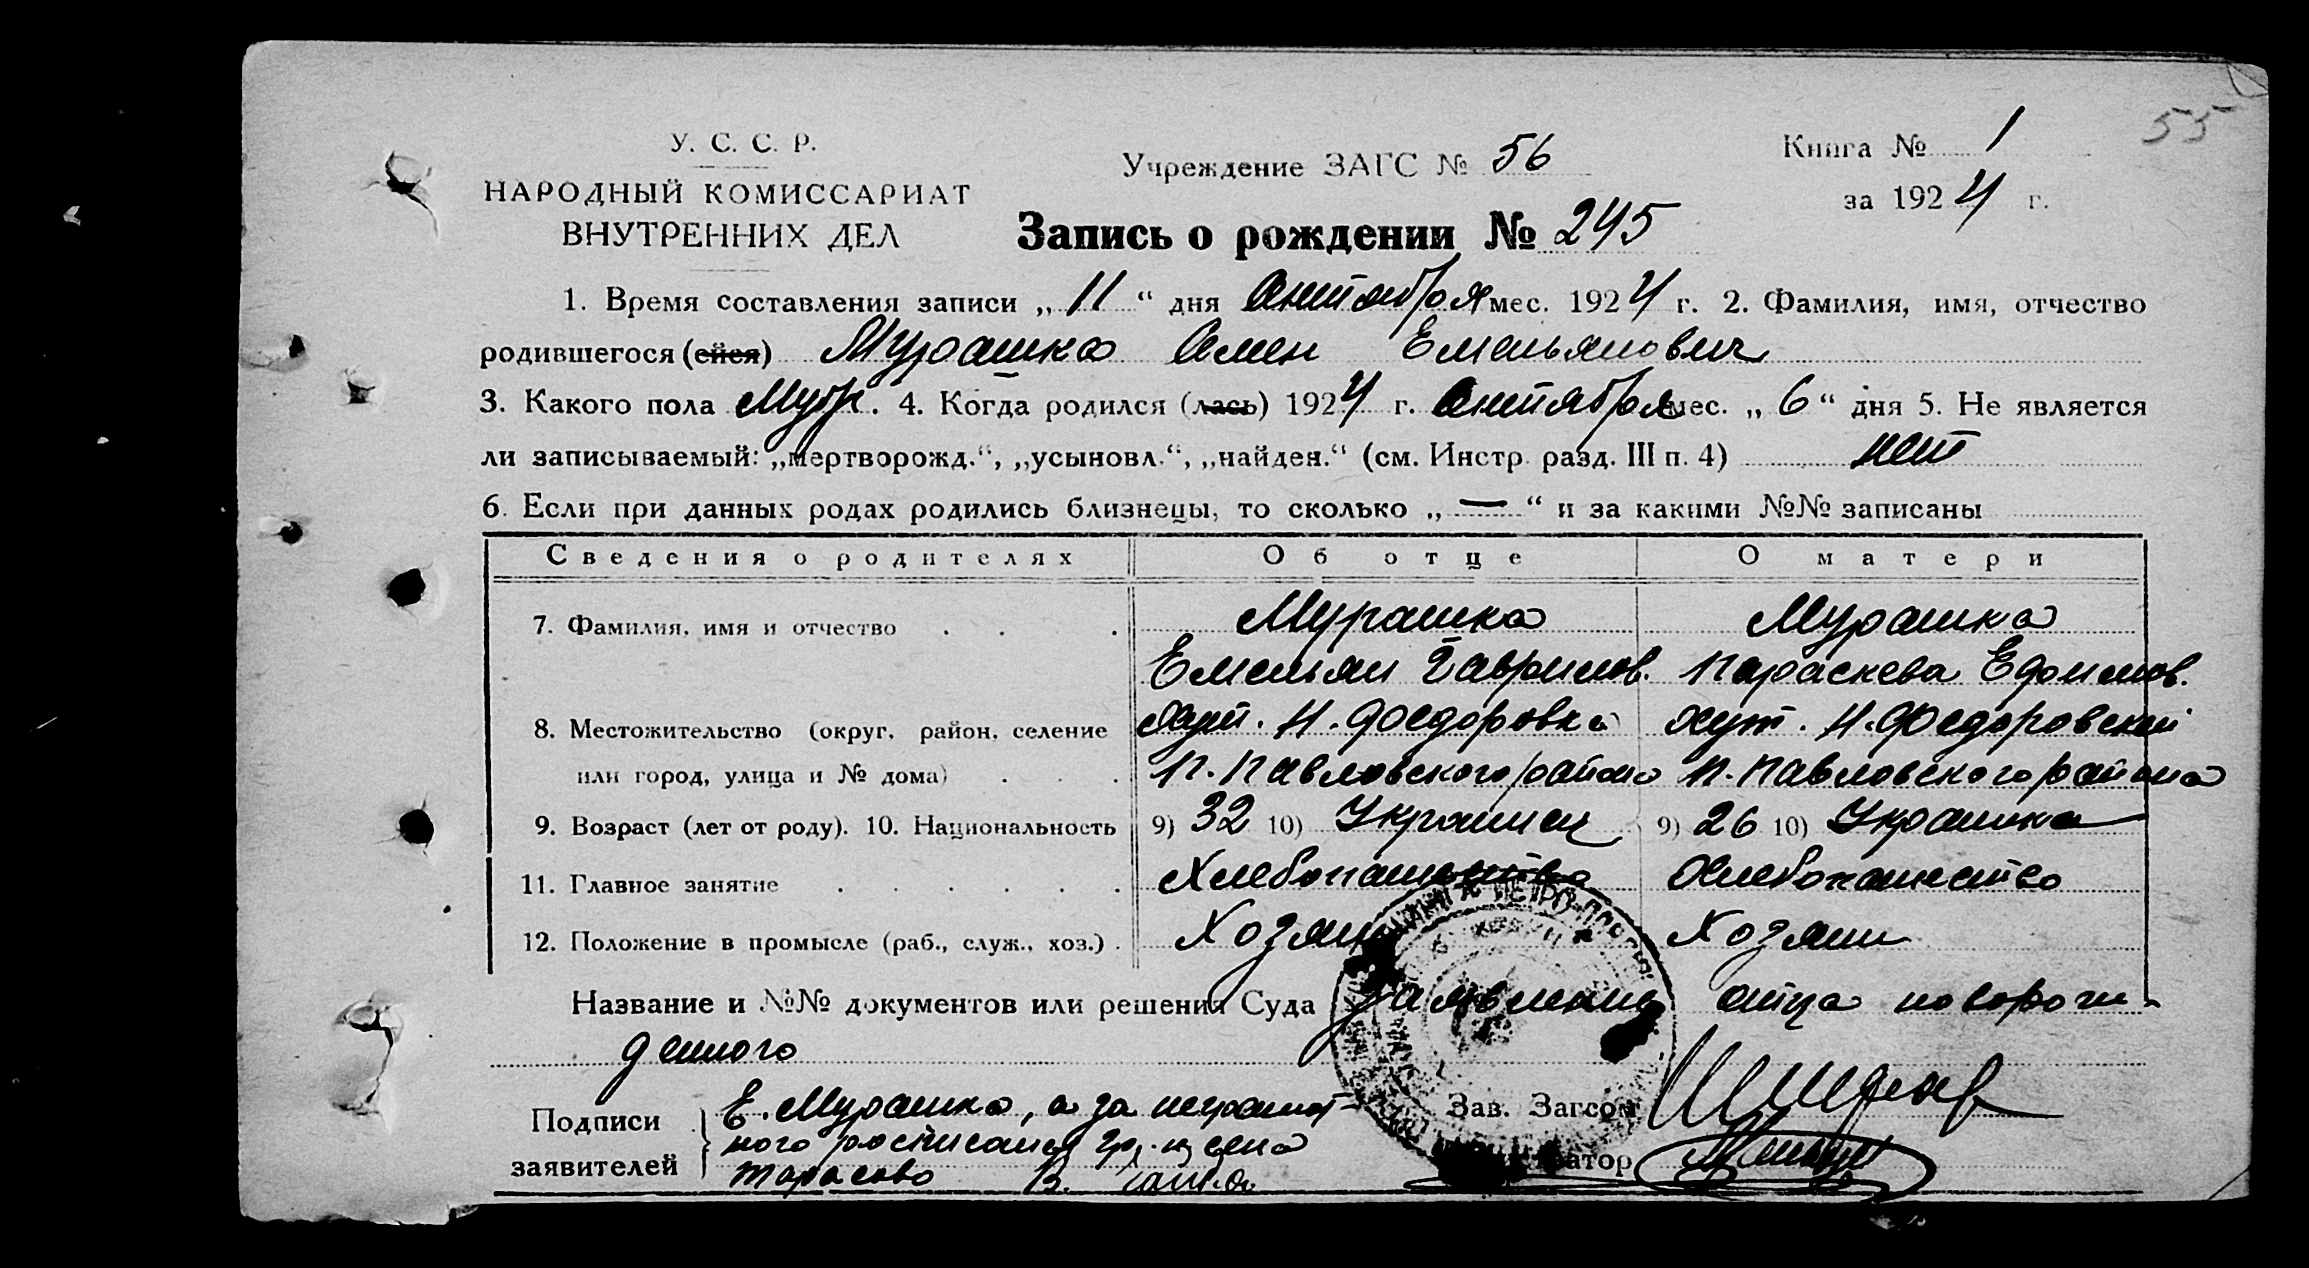 55
У. С. С. Р.
НАРОДНЫЙ КОМИССАРИАТ
ВНУТРЕННИХ ДЕЛ
Учреждение ЗАГС № 56
Книга № 1
за 1924 г.
Запись о рождении № 245
1. Время составления записи „ 11 “ дня Октября мес. 1924 г. 2. Фамилия, имя, отчество
родившегося (ейся) Мурашка Семен Емельянович
3. Какого пола Мужс. 4. Когда родился (лась) 1924 г. Октября мес. „ 6 “ дня 5. Не является
ли записываемый: „мертворожд.“, „усыновл.“, „найден.“ (см. Инстр. разд. III п. 4) нет
6. Если при данных родах родились близнецы, то сколько „ — “ и за какими №№ записаны
Сведения о родителях Об отце О матери
7. Фамилия, имя и отчество . . . Мурашка Мурашка
Емельян Гаврилов. Параскева Ефимов.
8. Местожительство (округ, район, селение Хут. Н. Федоровка Хут. Н. Федоровский
или город, улица и № дома) . . . П. Павловского района П. Павловского района
9. Возраст (лет от роду). 10. Национальность 9) 32 10) Украинец 9) 26 10) Украинка
11. Главное занятие . . . . . . Хлебопашество Хлебопашество
12. Положение в промысле (раб., служ., хоз.) . Хозяин Хозяин
Название и №№ документов или решения Суда Заявление отца новорож-
денного
Подписи
заявителей
Е. Мурашка, а за неграмот-
ного росписался гр. из села
Тарасово В.
Зав. Загсом